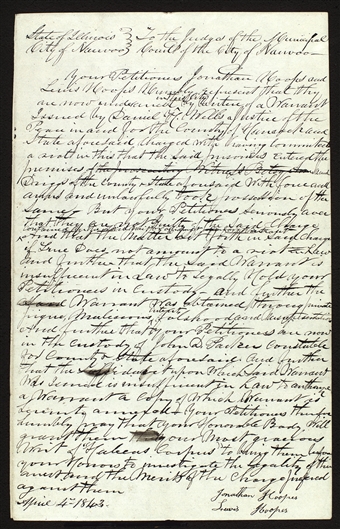 State of Illinois } To the Judges of the Municipal
City of Nauvoo } Court of the City of Nauvoo
Your Petitioners Jonathan Hoopes and
Lewis Hoopes represent that they
are now under arrest by virtue of a Warrant
Issued by Daniel H. Wells a Justice of the
Peace in and for the County of Hancock and
State aforesaid charged with having committed
a riot in this that the said prisoners entered the
premises
Briggs of the County & State aforesaid With force and
arms and unlawfully took possession of the
Same But your Petitioners seriously aver
that they are not guilty of the said charge
and the Matter Set forth in said Charge
if True Does not amount to a riot in Law
And further that the said Warrant is
insufficient in Law to legally hold your
Petitioners in Custody and further the
Said Warrant Was obtained through private
pique, Malicious intent falshood and
And further that your Petitioners are now
in the custody of John D. Parker Constable
for County & State aforesaid And further
that the upon Which said Warrant
Was issued is insufficient in Law to authorize
a Warrant a Copy of Which Warrant is
hereunto annexed Your Petitioners therefore
humbly pray that your Honorable Body Will
grant them your Most gracious
Writ of Habeas Corpus to bring them before
your Honors to investigate the legality of their
arrest and the Merits of the Charge preferred
against them
April 4th 1843.
Jonathan Hoopes
Lewis Hoopes